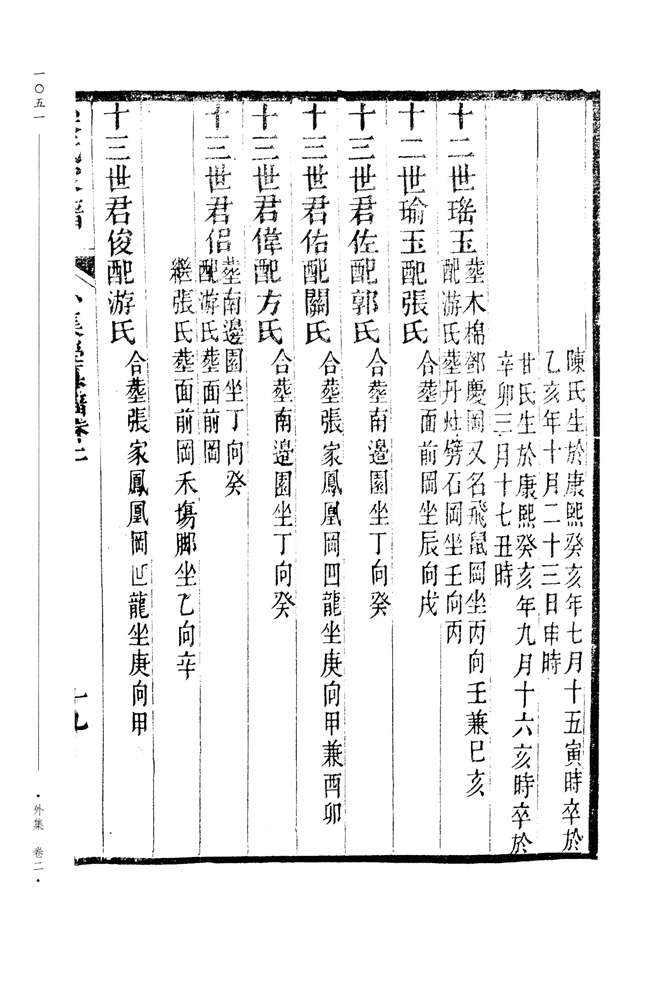 陳氏生於康熙癸亥年七月十五寅時卒於
乙亥年十月二十三日申時
甘氏生於康熙癸亥年九月十六亥時卒於
辛卯三月十七丑時
十二世瑤玉
葬木棉鄧慶岡又名飛鼠岡坐丙向壬兼巳亥
配游氏葬丹灶劈石岡坐壬向丙
十二世瑜玉配張氏 合葬面前岡坐辰向戌
十三世君佐配郭氏 合葬南邊園坐丁向癸
十三世君佑配關氏 合葬張家鳳凰岡四龍坐庚向甲兼酉卯
十三世君偉配方氏 合葬南邊園坐丁向癸
十三世君侶
葬南邊園坐丁向癸
配游氏葬面前岡
繼張氏葬面前岡禾塲脚坐乙向辛
十三世君俊配游氏 合葬張家鳳凰岡 龍坐庚向甲
十九
一〇五一
·外集 卷二·